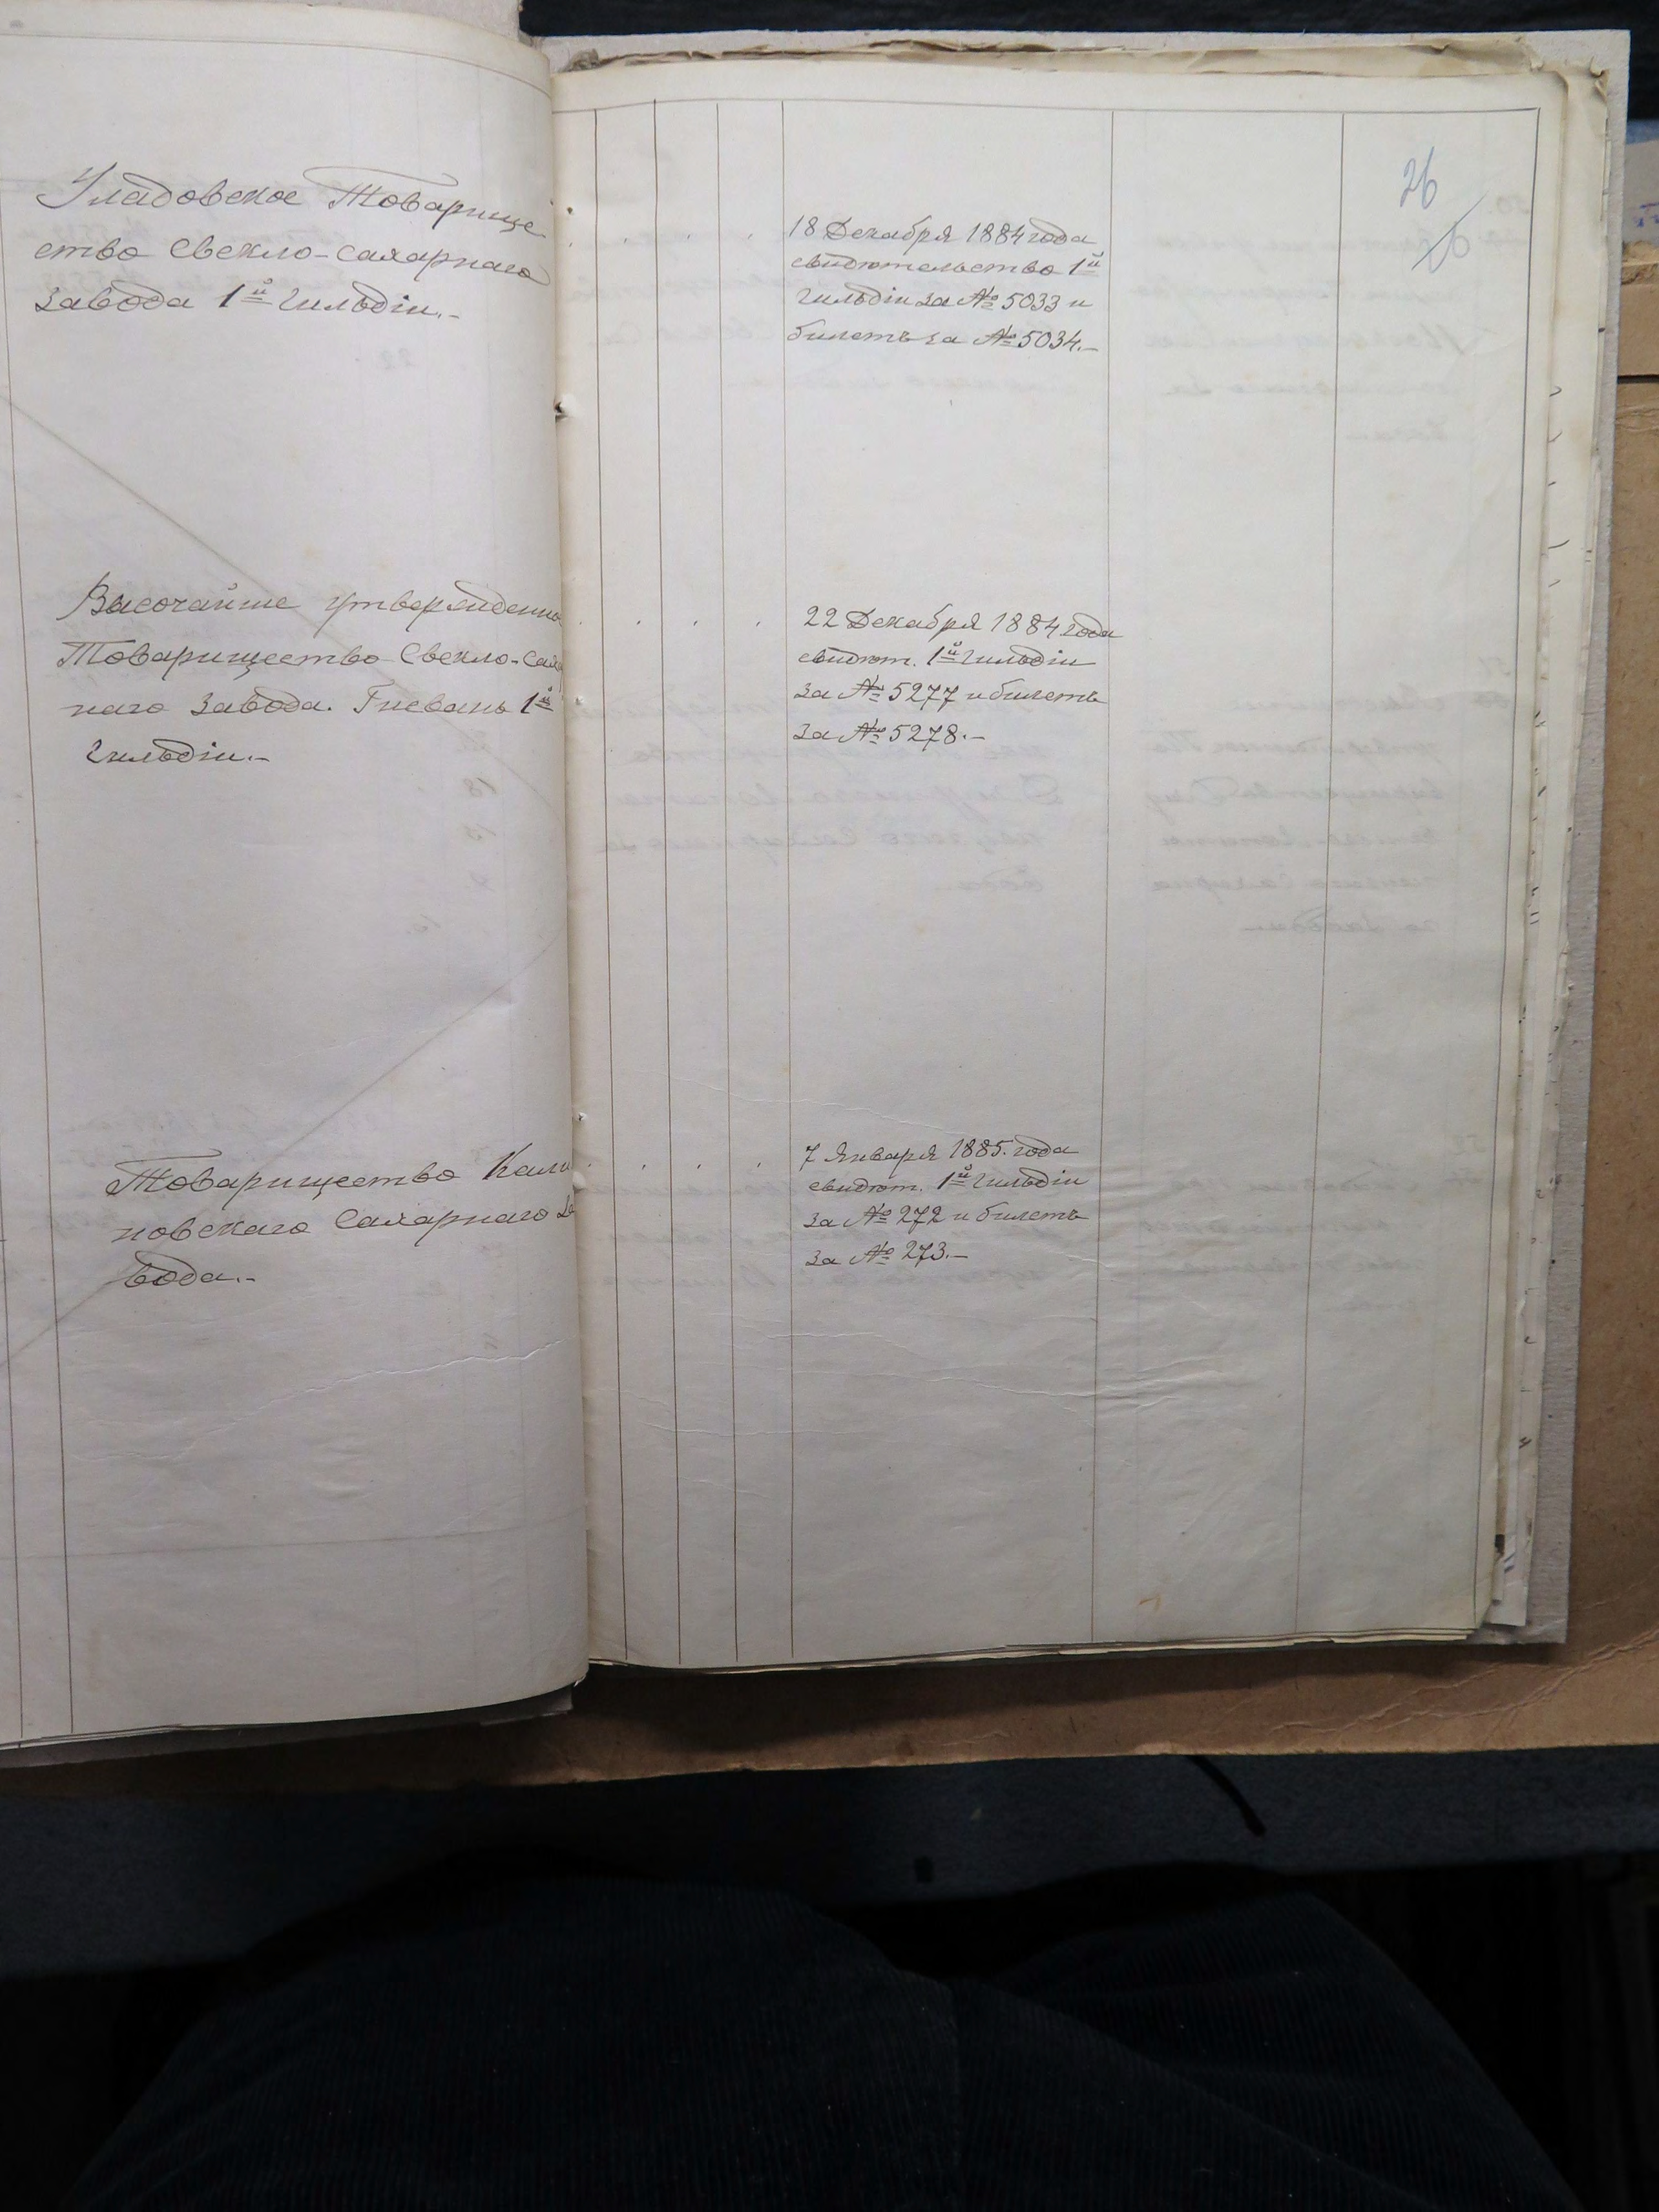 Уладовское Товарище
ство Свекло-сахарнаго
завода 1й Гильдіи.-
Высочайше утвержденно
Товарищество Свекло-сах
наго завода. Гневань 1й
Гильдіи.-
Товарищество Кали
новскаго Сахарнаго За
вода.-
26
18 Декабря 1884 года
свидѣтельство 1й
Гильдіи за № 5033 и
билетъ за № 5034.-
22 Декабря 1884 года
свидѣт. 1й Гильдіи
за № 5277 и билетъ
за № 5278.-
7 Января 1885. года
свидѣт. 1й Гильдіи
за № 272 и билетъ
за № 273.-